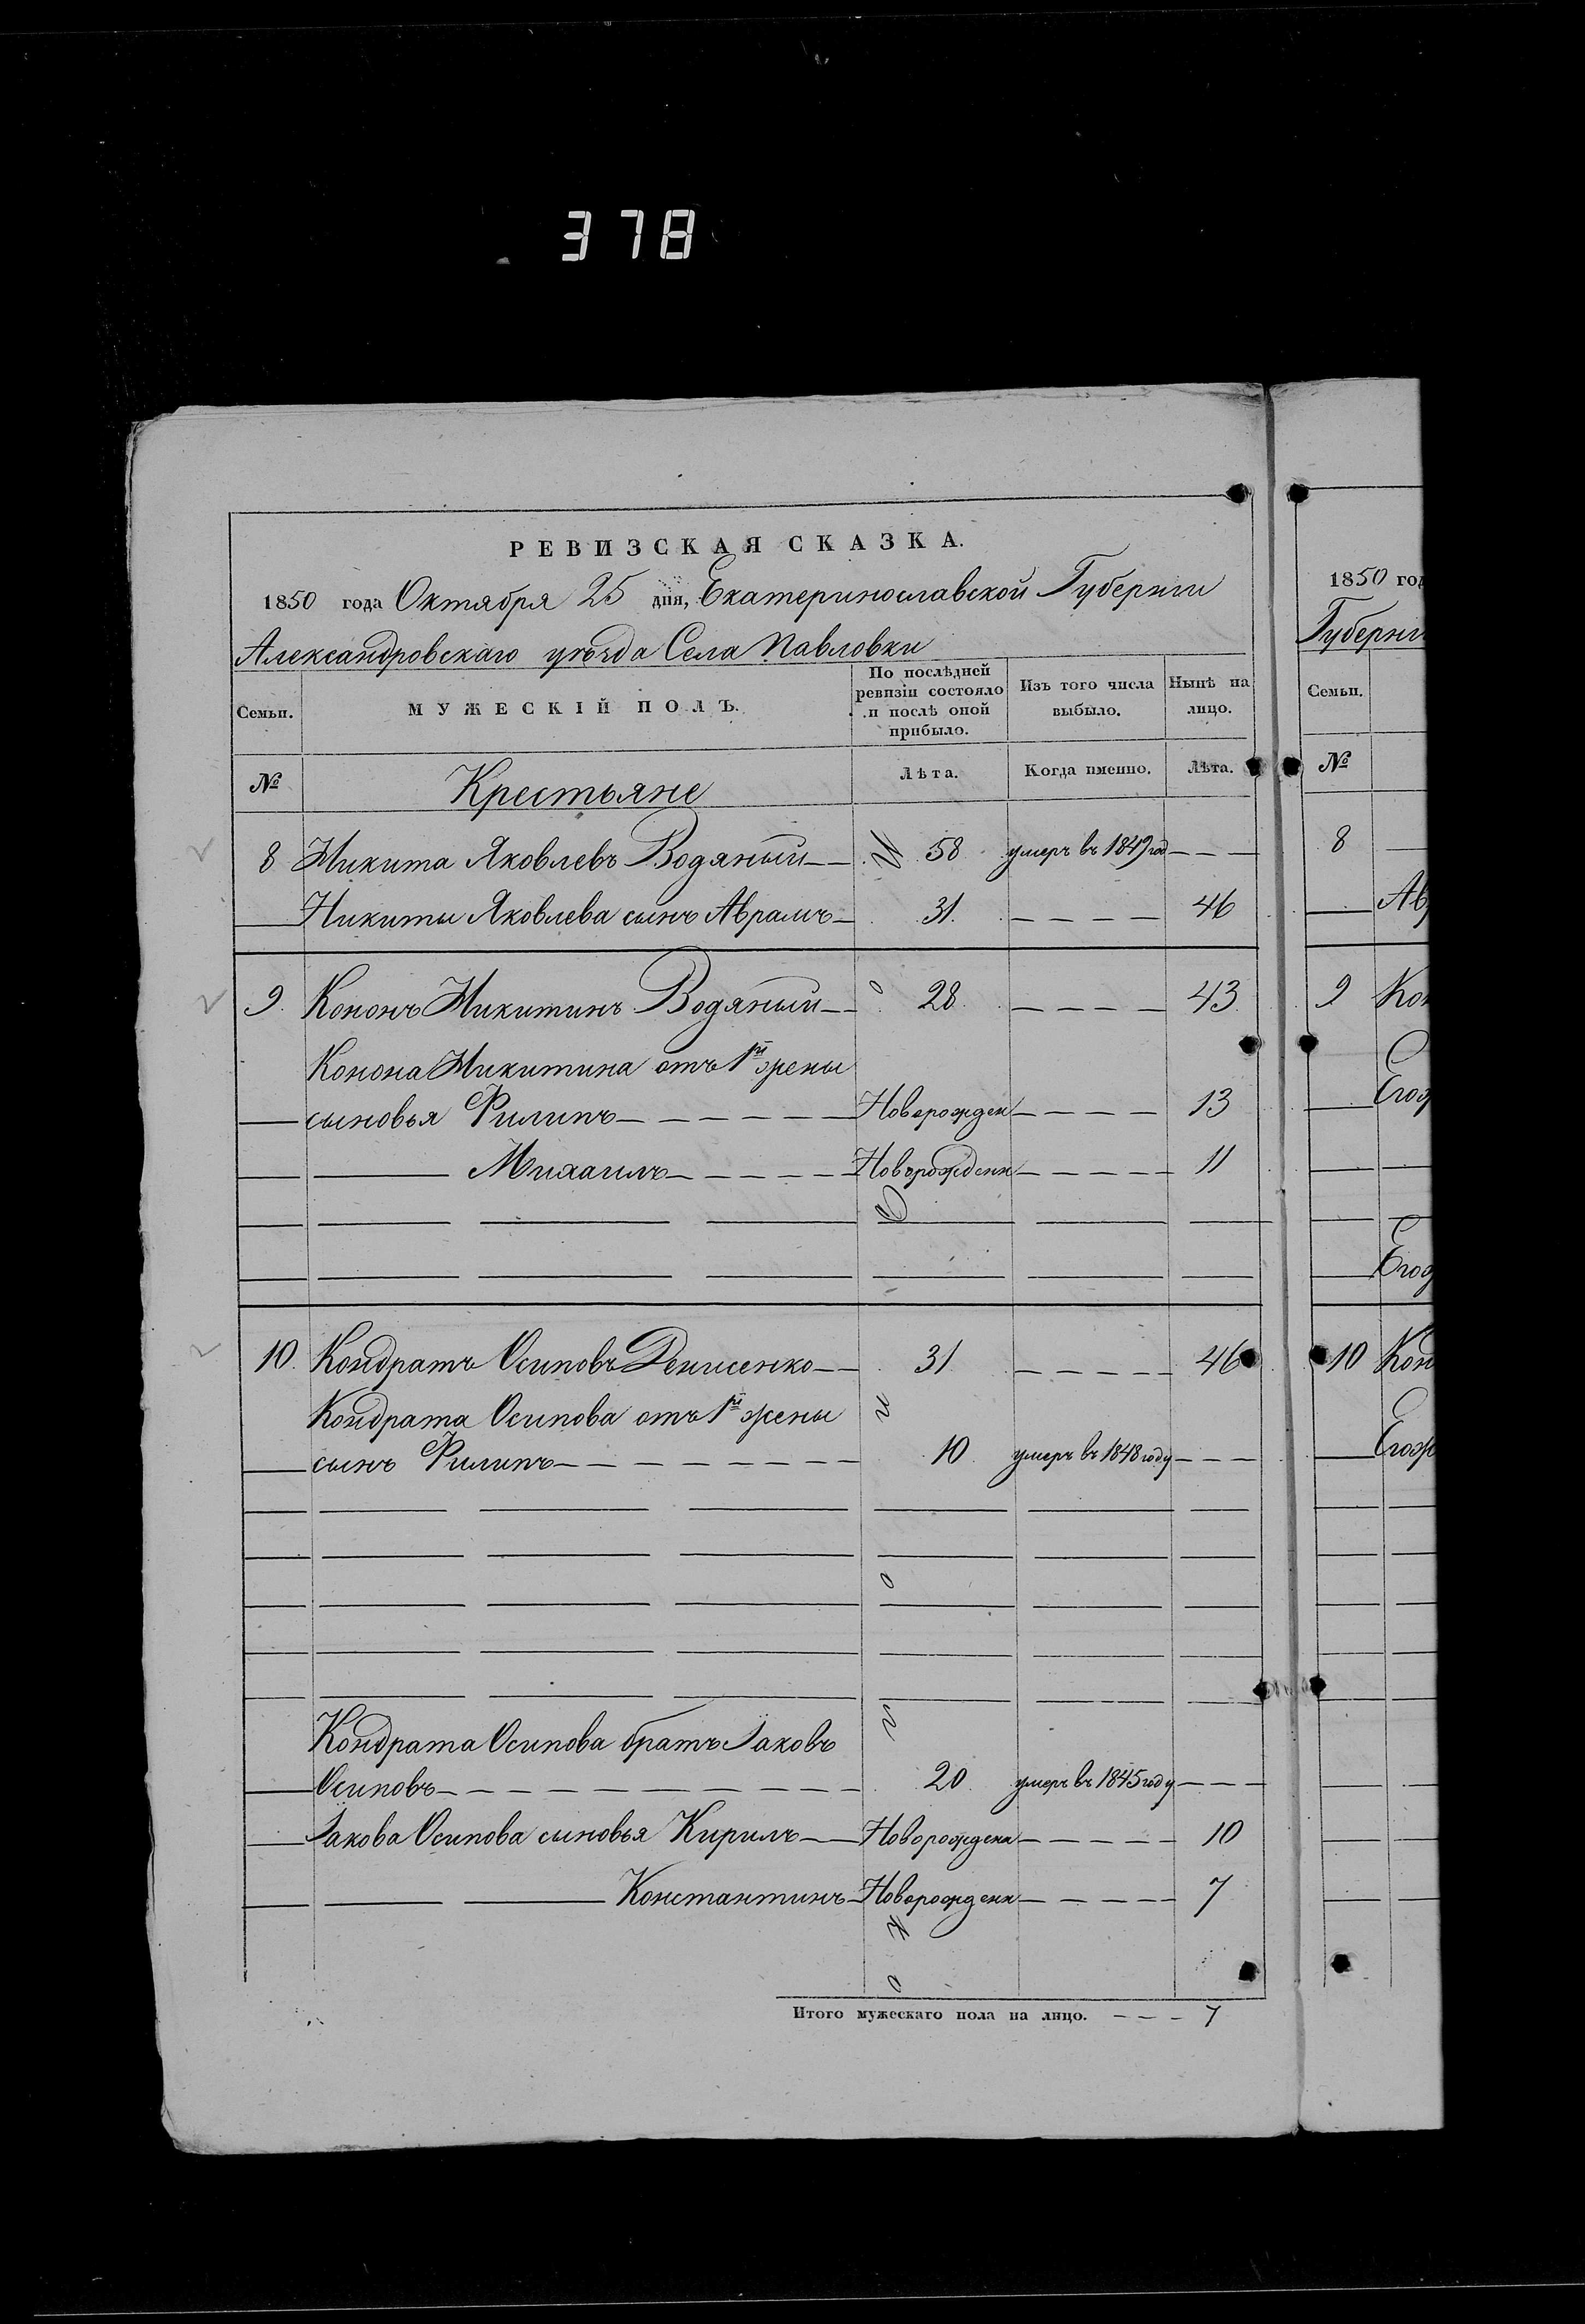 378
РЕВИЗСКАЯ СКАЗКА.
1850 года Октября 25 дня, Екатеринославской Губернии
Александровскаго уѣзда Села Павловки
Семьи. МУЖЕСКІЙ ПОЛЪ. По послѣдней ревизіи состояло и послѣ оной прибыло. Изъ того числа выбыло. Нынѣ на лицо.
№ Крестьяне Лѣта. Когда именно. Лѣта.
8 Никита Яковлевъ Водяный 58 умеръ въ 1849 год
Никиты Яковлева сынъ Аврамъ 31. 46
9. Кононъ Никитинъ Водяный 28. 43
Конона Никитина отъ 1й жены
сыновья Филипъ Новорожден 13
Михаилъ Новорожденн 11
10. Кондратъ Осиповъ Денисенко 31 46
Кондрата Осипова отъ 1й жены
сынъ Филипъ 10. умеръ въ 1848 году
Кондрата Осипова братъ Іаковъ
Осиповъ 20. умеръ въ 1845 году
Іакова Осипова сыновья Кирилъ Новорожденн 10
Константинъ Новорожденн 7
Итого мужескаго пола на лицо. 7
1850 год
Губерни
Семьи.
№
8
Ав
9 Кон
Егож
Егож
10 Кон
Егож